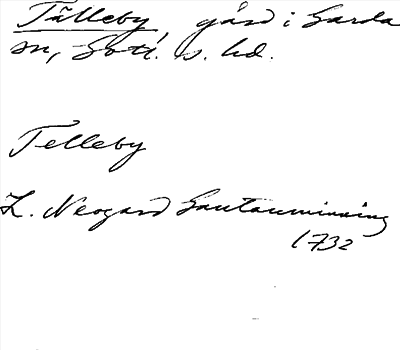 Tälleby, gård i Garda
sn, Gotl. s. hd.
Telleby
L. Neogard Gautauminning
1732